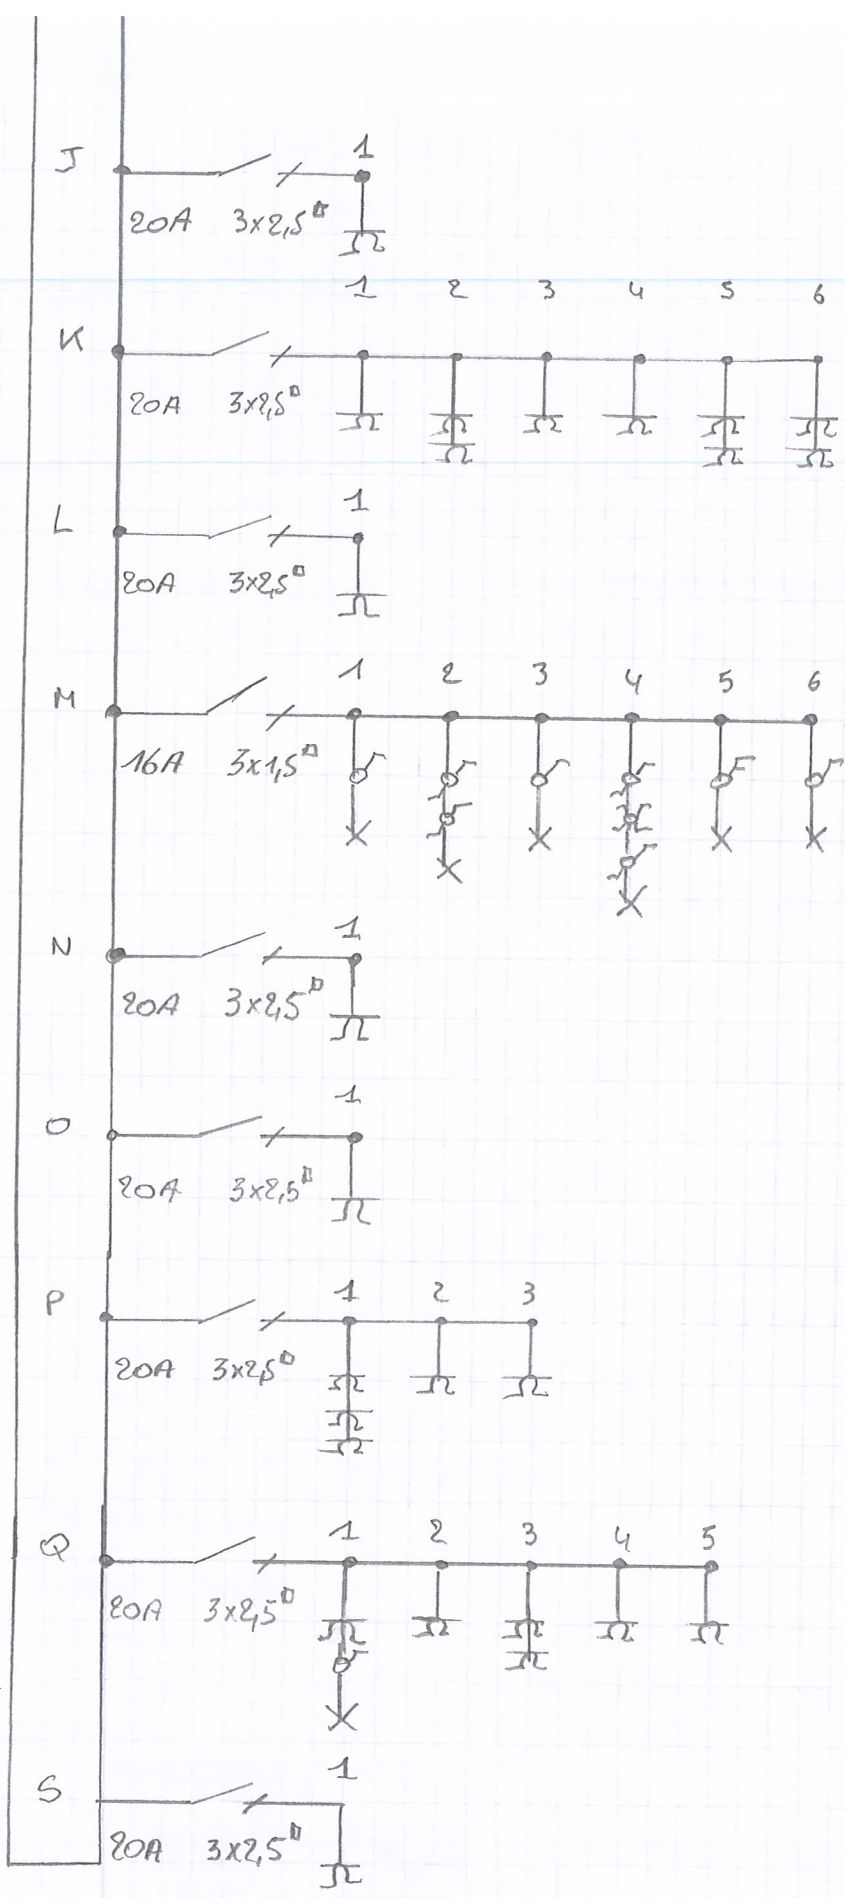 1
J
20A 3x2,5□
1 2 3 4 5 6
K
20A 3x2,5□
1
L
20A 3x2,5□
1 2 3 4 5 6
M
16A 3x1,5□
1
N
20A 3x2,5□
1
O
20A 3x2,5□
1 2 3
P
20A 3x2,5□
1 2 3 4 5
Q
20A 3x2,5□
1
S
20A 3x2,5□